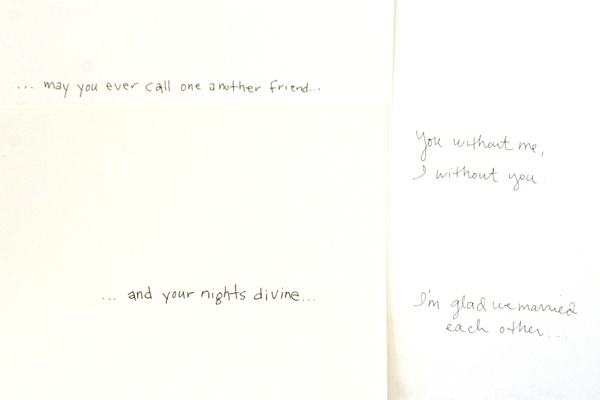 ... may you ever call one another friend...
... and your nights divine...
You without me,
I without you.
I'm glad we married
each other...